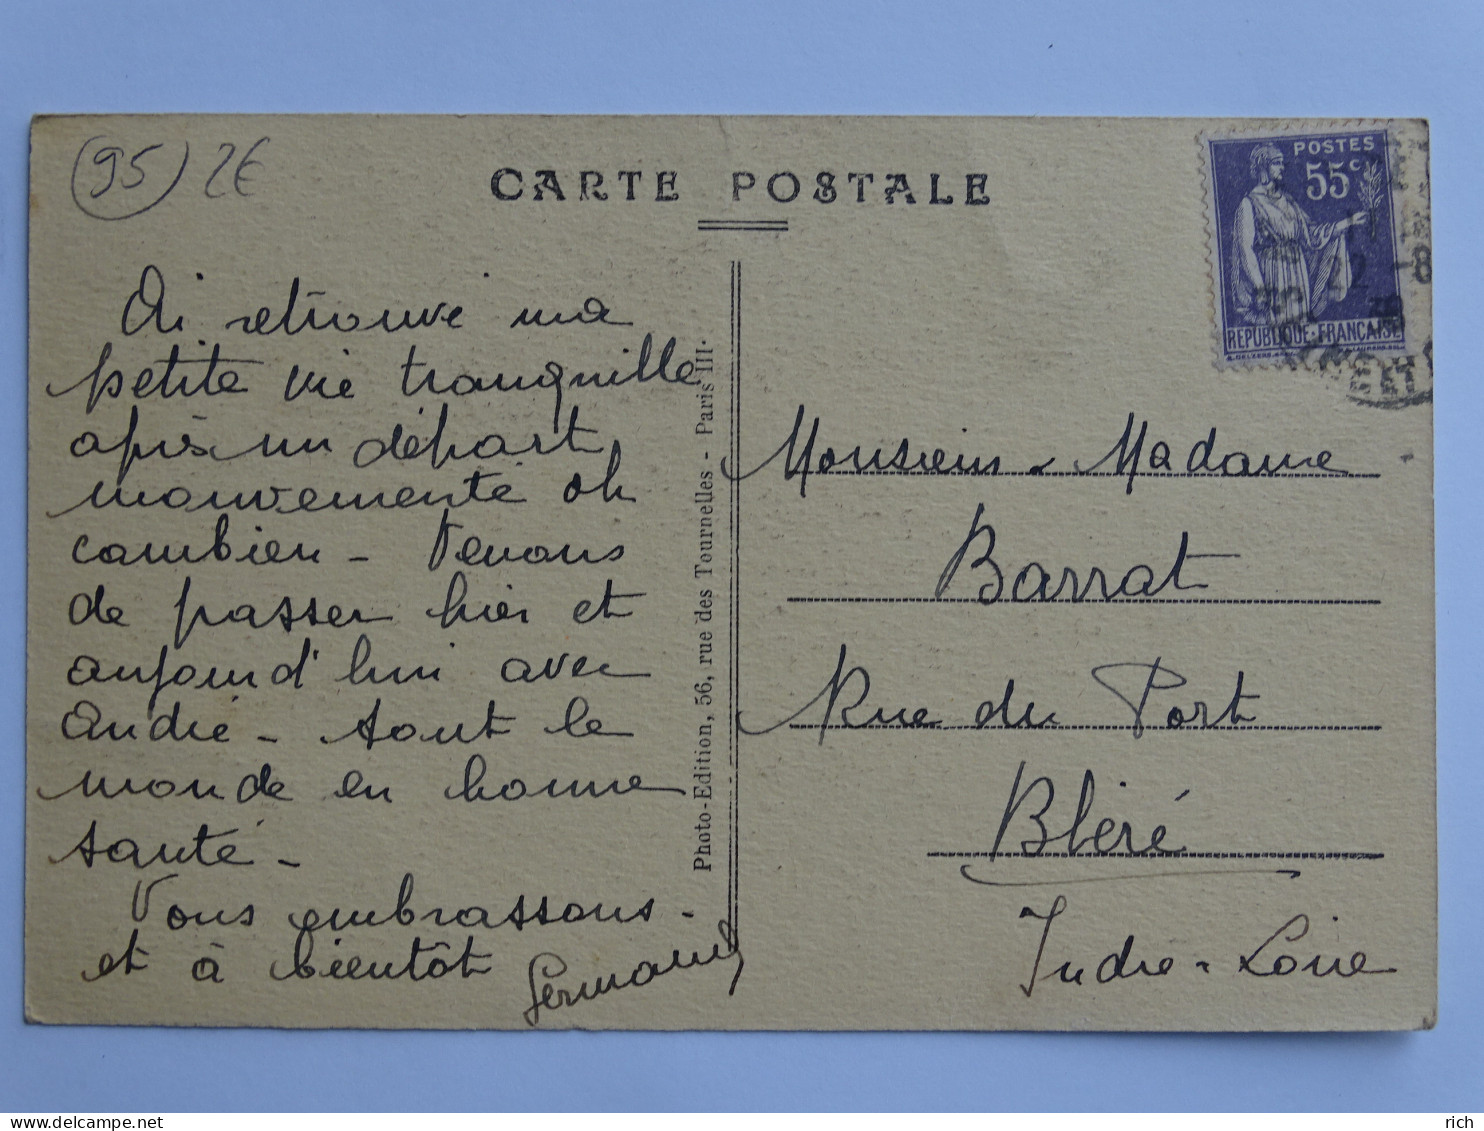 (95) 2€
CARTE POSTALE
POSTES
55c
22 -8
38
REPUBLIQUE·FRANCAISE
Ai retrouvé ma
petite vie tranquille
après un départ
mouvementé oh
combien - Venons
de passer hier et
aujourd'hui avec
André - tout le
monde en bonne
santé -
Vous embrassons -
et à bientôt
Germaine
Photo-Edition, 56, rue des Tournelles - Paris III.
Monsieur - Madame
Barrat
Rue du Port
Bléré
Indre-Loire
delcampe.net
rich